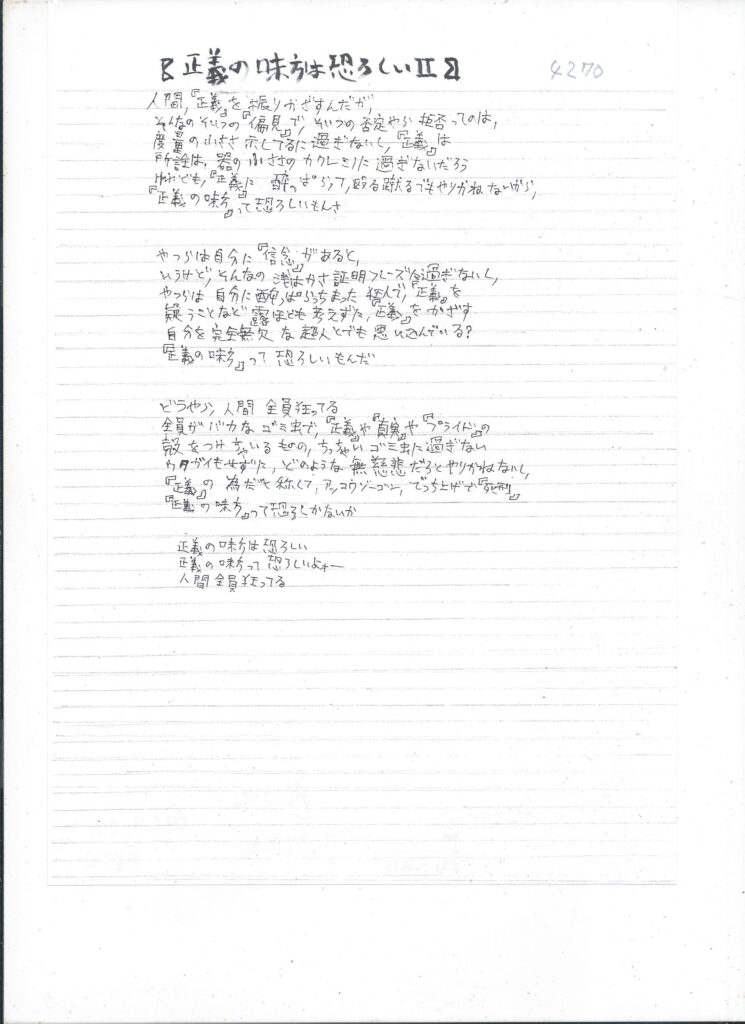 〖正義の味方は恐ろしいⅡ〗 4270
人間,『正義』を振りかざすんだが,
そんなのそいつの『偏見』で,そいつの否定やら拒否ってのは,
度量の小ささ示してるに過ぎないし,『正義』は
所詮は,器の小ささのカクレミノに過ぎないだろう
けれども,『正義』に酔っぱらって,殴る蹴るでもやりかねないから,
『正義の味方』って恐ろしいもんさ
やつらは自分に『信念』があると,
いうけど,そんなの浅はかさ証明フレーズに過ぎないし,
やつらは自分に酔っぱらっちまった狂人で,『正義』を
疑うことなど露ほども考えずに,『正義』をかざす
自分を完全無欠な超人とでも思い込んでいる?
『正義の味方』って恐ろしいもんだ
どうやら,人間全員狂ってる
全員がバカなゴミ虫で,『正義』や『真実』や『プライド』の
殻をつけちゃいるものの,ちっちゃいゴミ虫に過ぎない
ウタガイもせずに,どのような無慈悲だろとやりかねないし,
『正義』の為だと称して,アッコウゾーゴン,でっち上げで『死刑』
『正義の味方』って恐ろしかないか
正義の味方は恐ろしい
正義の味方って恐ろしいよォー
人間全員狂ってる